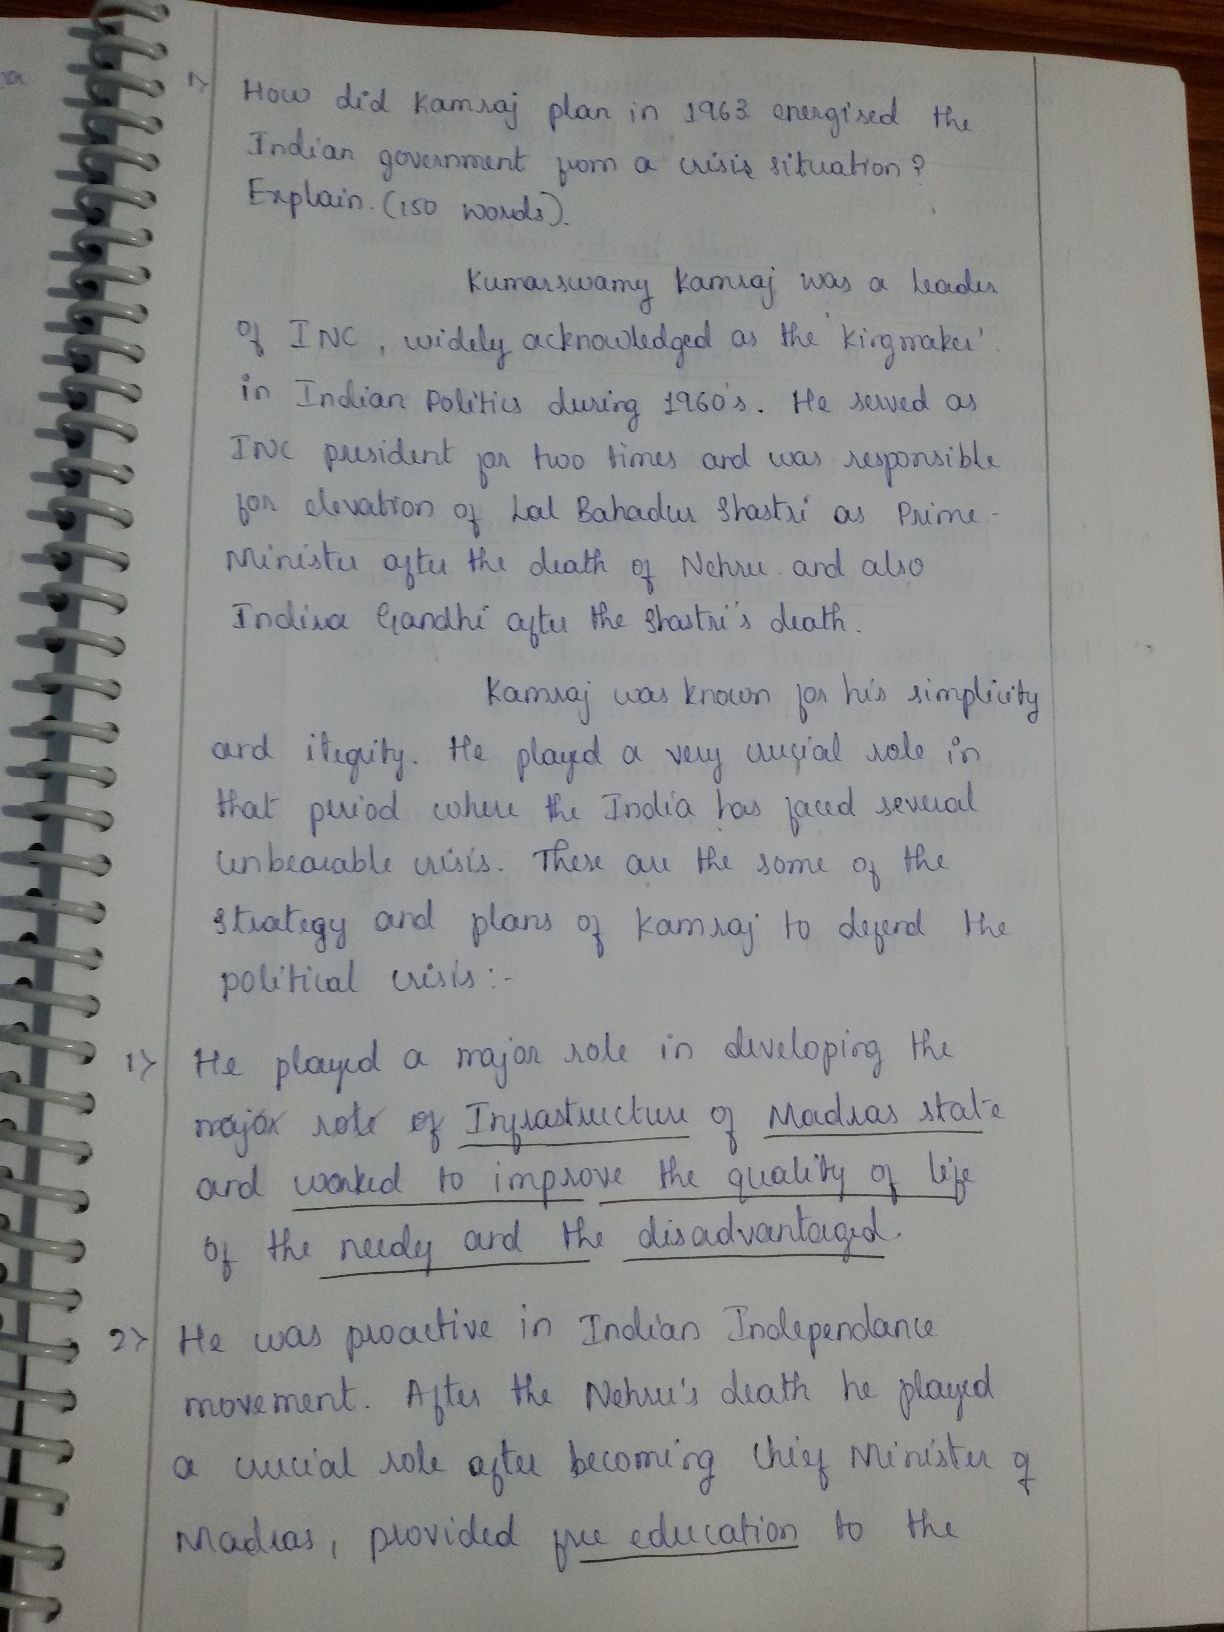 1> How did Kamraj plan in 1963 energised the
Indian government from a crisis situation?
Explain. (150 words).
Kumarswamy Kamraj was a leader
of INC, widely acknowledged as the 'Kingmaker'
in Indian Politics during 1960's. He served as
INC president for two times and was responsible
for elevation of Lal Bahadur Shastri as Prime-
Minister after the death of Nehru and also
Indira Gandhi after the Shastri's death.
Kamraj was known for his simplicity
and itegrity. He played a very crucial role in
that period where the India has faced several
unbearable crisis. These are the some of the
strategy and plans of Kamraj to defend the
political crisis:-
1> He played a major role in developing the
major role of Infrastructure of Madras state
and worked to improve the quality of life
of the needy and the disadvantaged.
2> He was proactive in Indian Independance
movement. After the Nehru's death he played
a crucial role after becoming Chief Minister of
Madras, provided free education to the